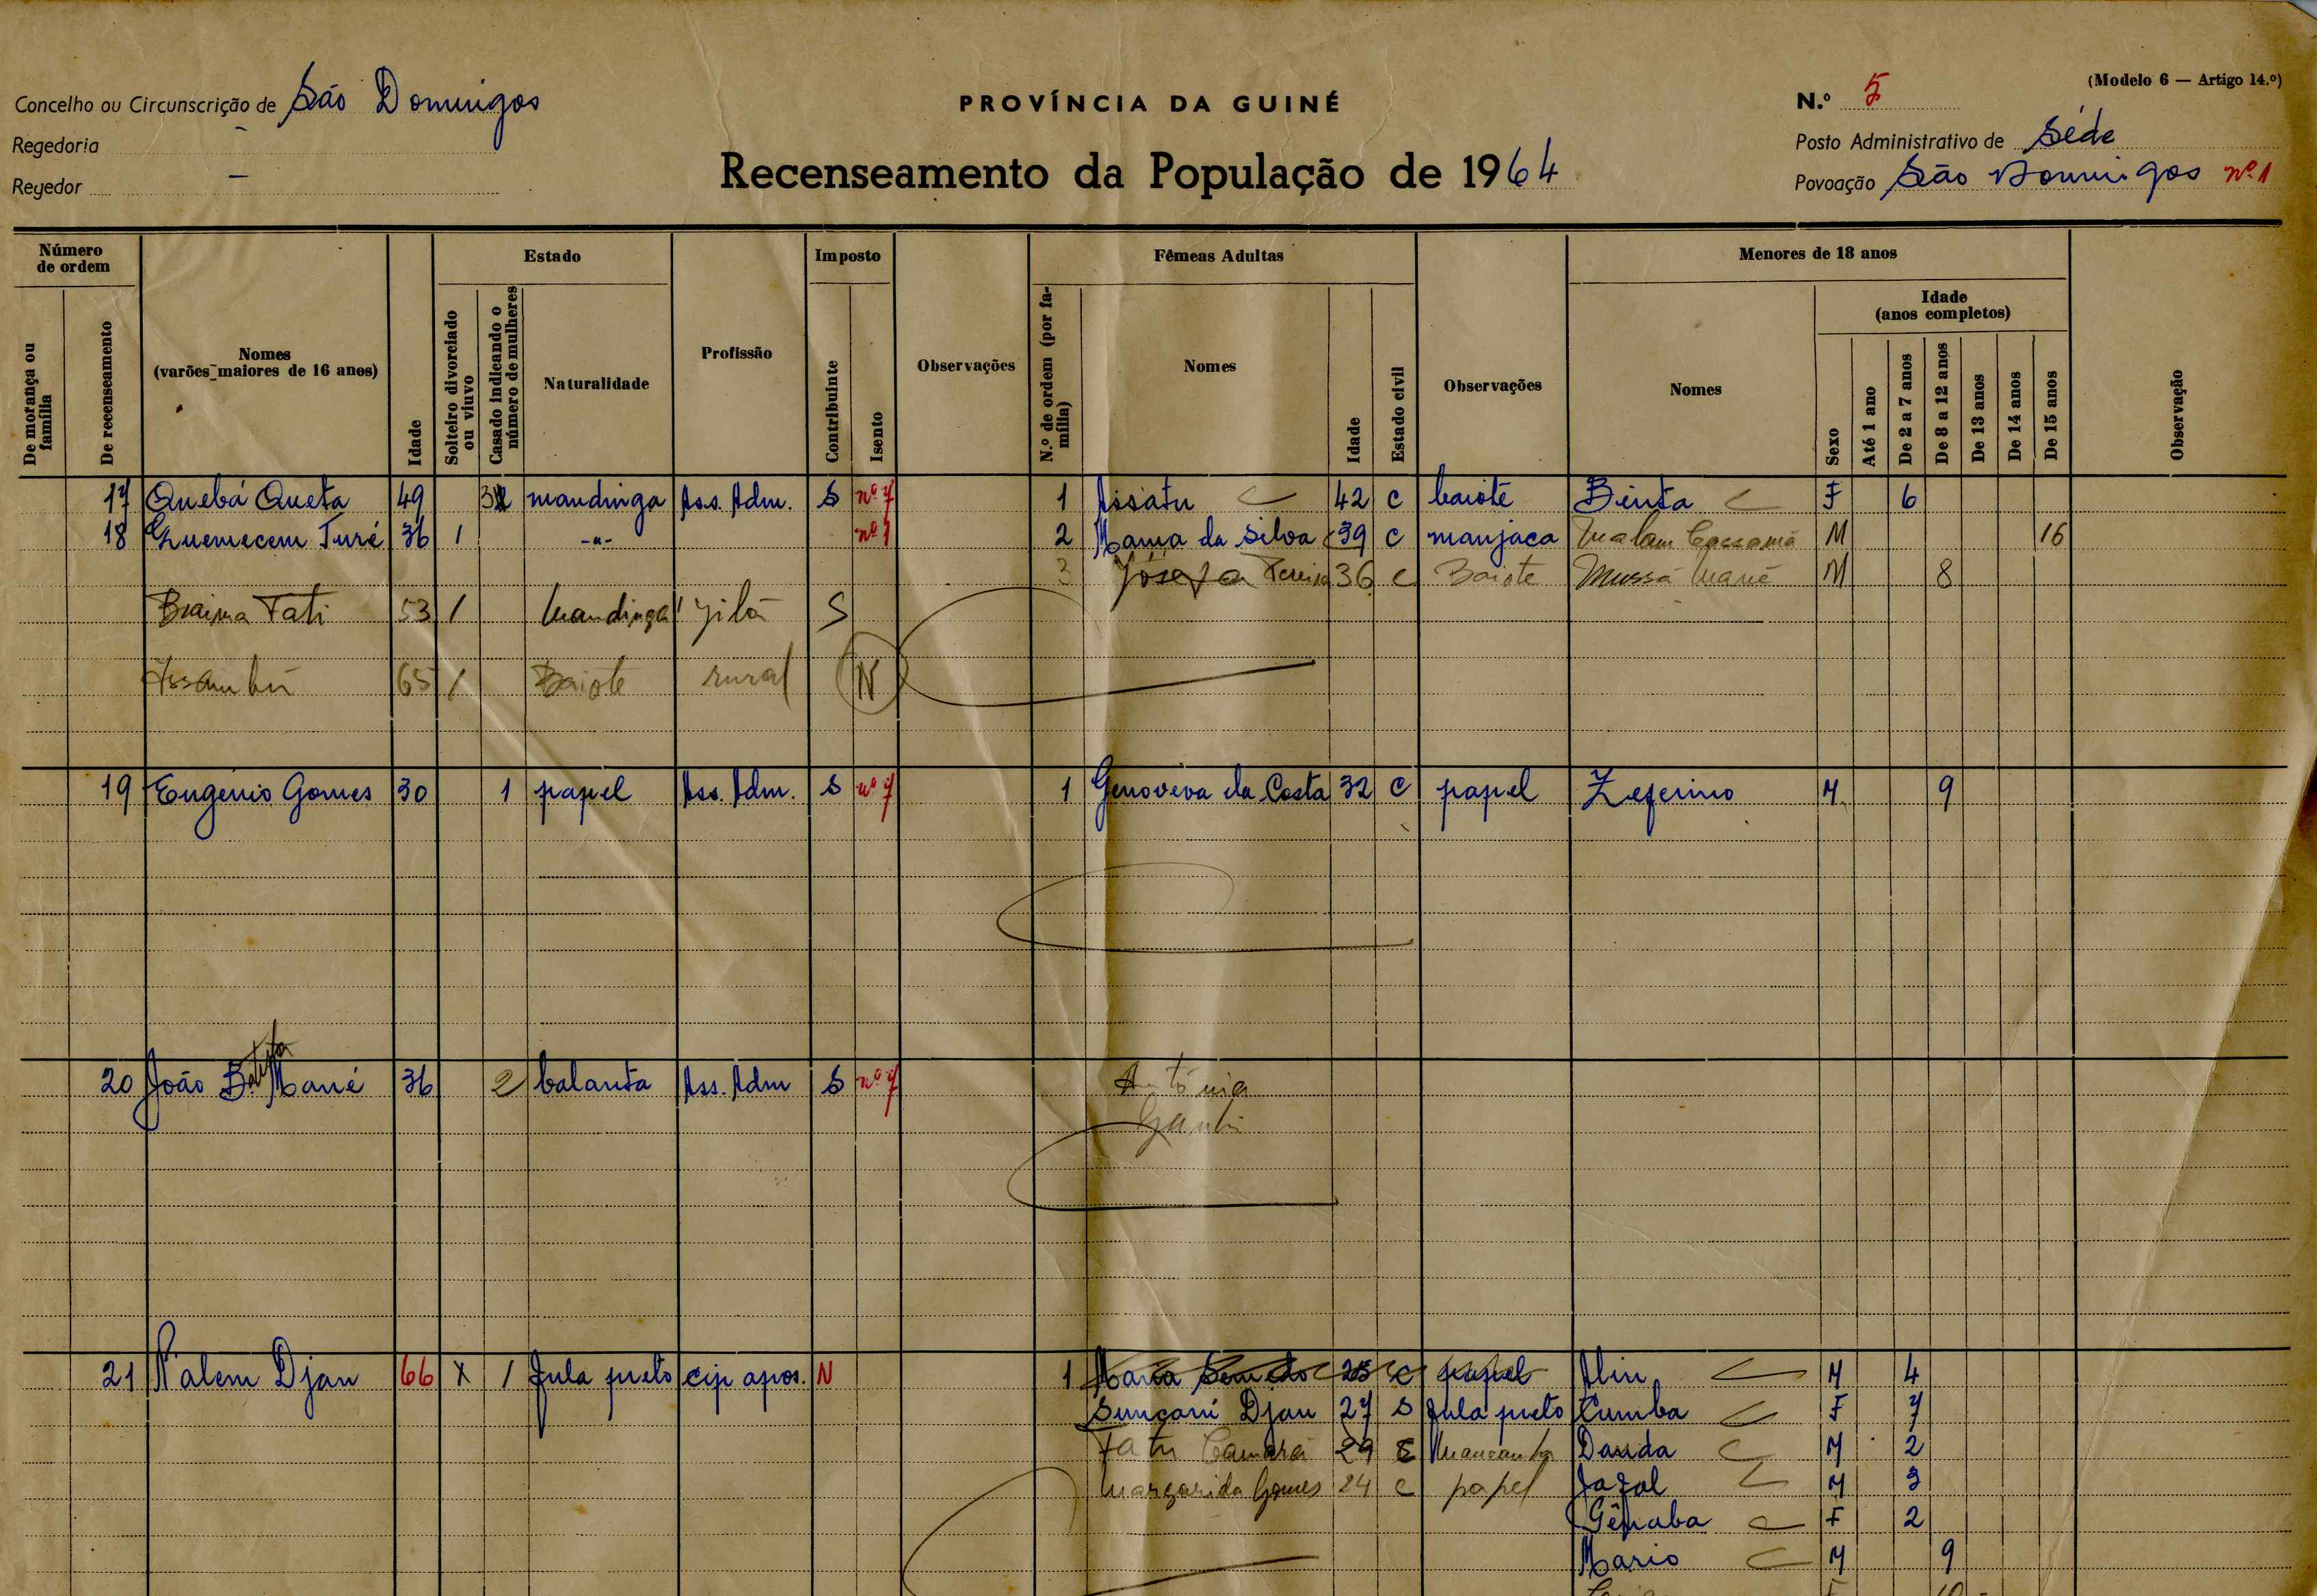 (Modelo 6 — Artigo 14.º)
Concelho ou Circunscrição de São Domingos
PROVÍNCIA DA GUINÉ
N.º 5
Regedoria –
Posto Administrativo de Séde
Regedor –
Recenseamento da População de 1964
Povoação São Domingos nº 1
Número de ordem
Estado
Imposto
Fêmeas Adultas
Menores de 18 anos
De morança ou família
De recenseamento
Nomes (varões maiores de 16 anos)
Idade
Solteiro divorciado ou viuvo
Casado indicando o número de mulheres
Naturalidade
Profissão
Contribuinte
Isento
Observações
N.º de ordem (por família)
Nomes
Idade
Estado civil
Observações
Nomes
Sexo
Idade (anos completos)
Até 1 ano
De 2 a 7 anos
De 8 a 12 anos
De 13 anos
De 14 anos
De 15 anos
Observação
17 Quebá Queta 49 3 mandinga Ass. Adm. S nº 7 1 Assatu 42 C baiote Binta F 6
18 Turé 36 / -"- nº 1 2 Maria da Silva 39 C manjaca Malam Cassamá M 16
3 Josefa Pereira 36 C Baiote Mussá Mané M 8
Braima Fati 53 / Mandinga Gilá S
65 / Baiote rural N
19 Eugénio Gomes 30 1 papel Ass. Adm. S nº 7 1 Genoveva da Costa 32 C papel Zeferino M 9
20 João Batista Mané 36 2 balanta Ass. Adm S nº 7 Antónia
21 N'alem Djau 66 X / fula preto cip apos. N 1 Maria Semedo 25 C papel Aliu M 4
Sungani Djau 27 S fula preto Cumba F 7
Fatu Camará 29 C Mancanha Dauda M 2
Margarida Gomes 24 C papel M 3
F 2
Mario M 9